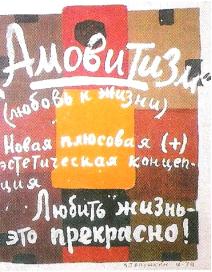 "Амовитизм"
(любовь к жизни)
Новая плюсовая (+)
эстетическая концеп-
ция
Любить жизнь-
это прекрасно!